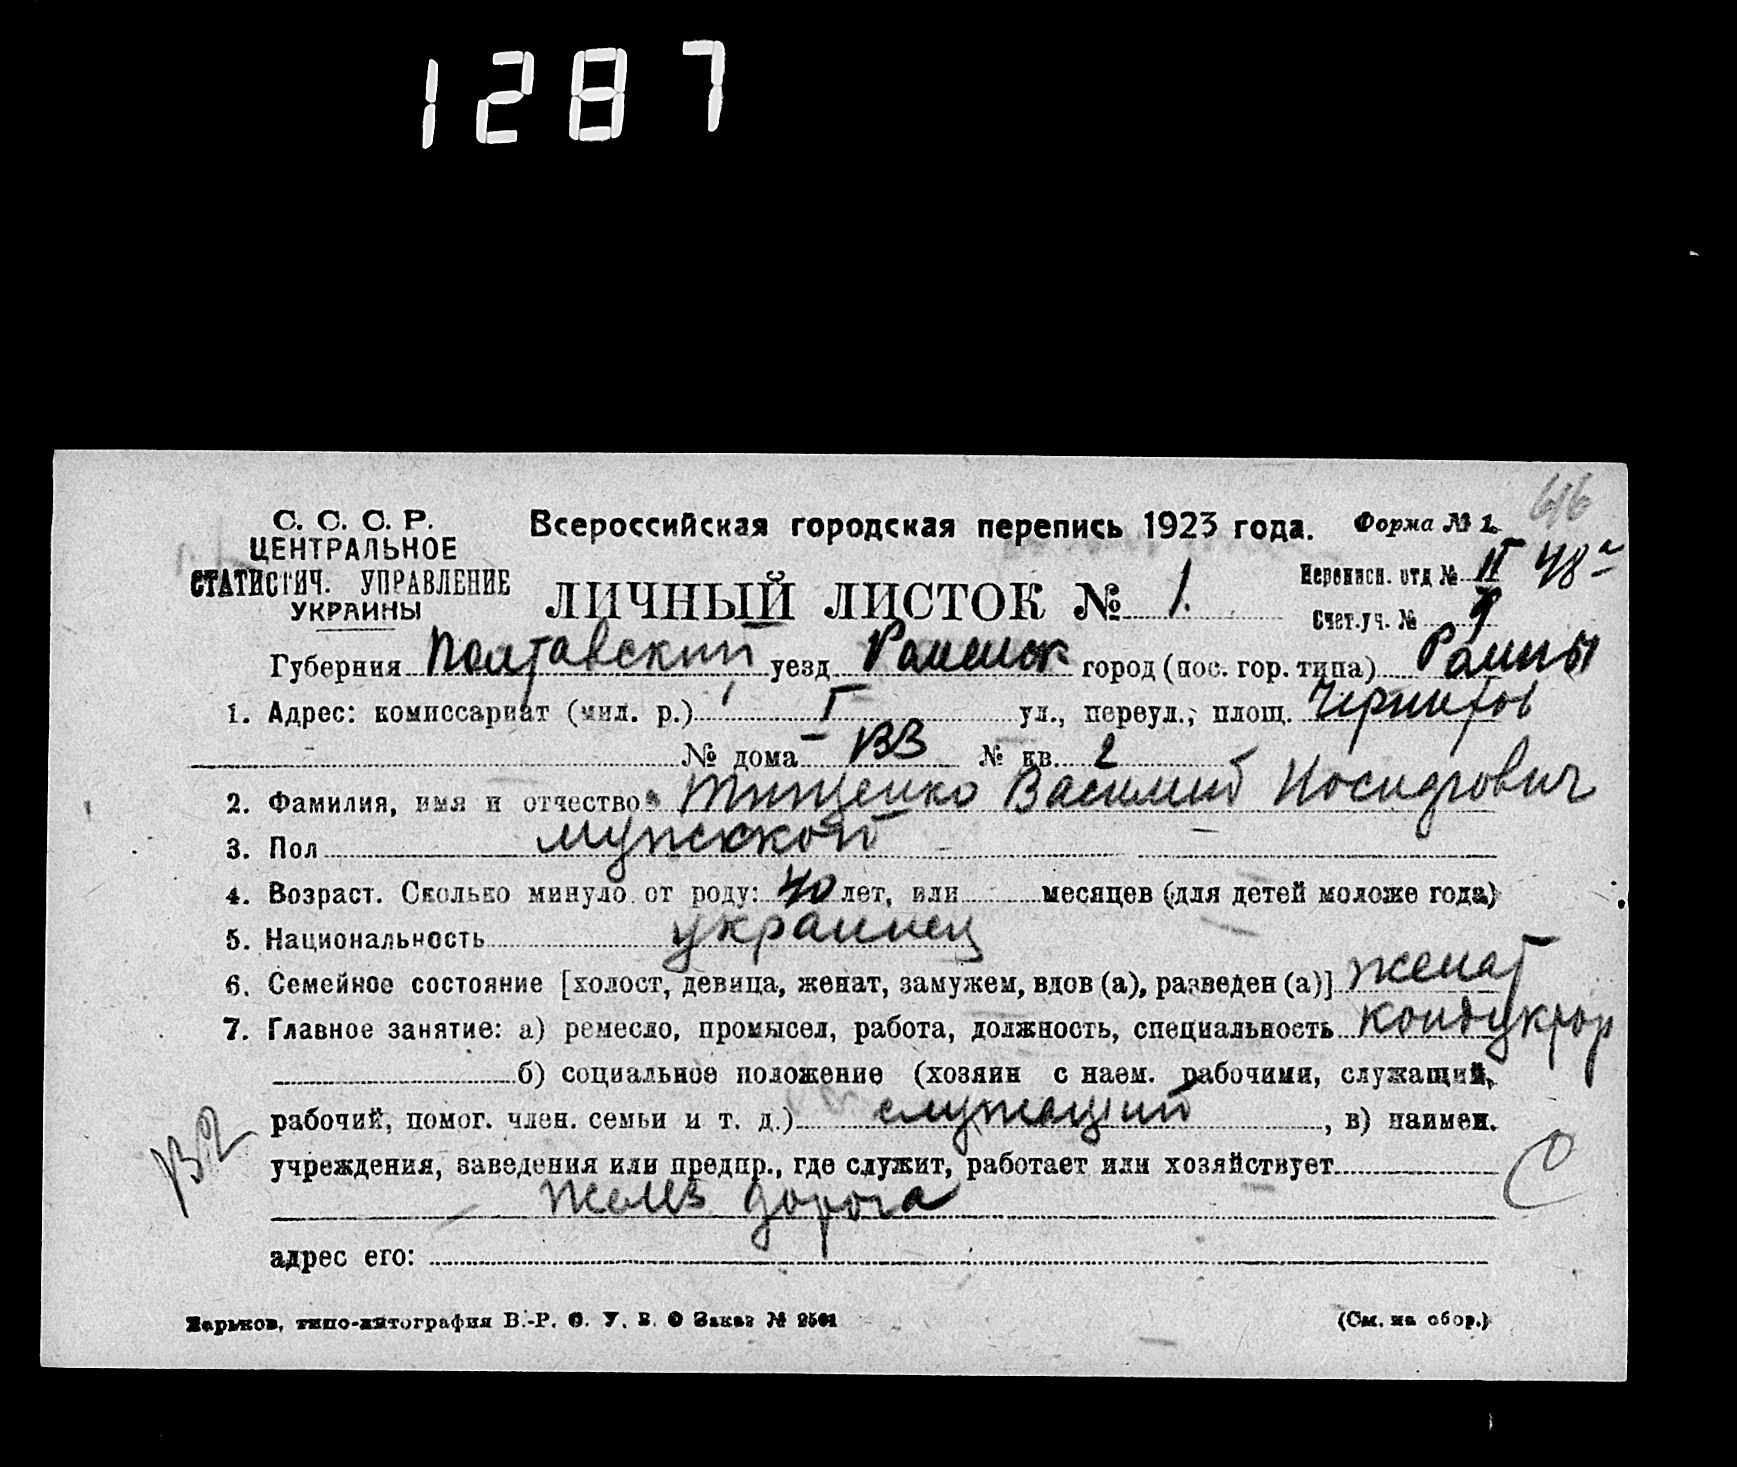 1287
616
С. С. С. Р.
ЦЕНТРАЛЬНОЕ
СТАТИСТИЧ. УПРАВЛЕНИЕ
УКРАИНЫ
Всероссийская городская перепись 1923 года. Форма № 1.
ЛИЧНЫЙ ЛИСТОК № 1.
Переписн. отд № II 48
Счет. уч. № 9
Губерния Полтавский уезд Роменск город (пос. гор. типа) Ромны
1. Адрес: комиссариат (мил. р.) I ул., переул., площ. Чернигов
№ дома № кв. 2
2. Фамилия, имя и отчество Тищенко Василий Иосидрович
3. Пол мужской
4. Возраст. Сколько минуло от роду: 40 лет, или месяцев (для детей моложе года)
5. Национальность украинец
6. Семейное состояние [холост, девица, женат, замужем, вдов (а), разведен (а)] женат
7. Главное занятие: а) ремесло, промысел, работа, должность, специальность кондуктор
б) социальное положение (хозяин с наем. рабочими, служащий,
рабочий, помог. член. семьи и т. д.) служащий, в) наимен.
учреждения, заведения или предпр., где служит, работает или хозяйствует
желез дорога
адрес его:
Харьков, типо-литография В.-Р. О. У. В. О Заказ № 2501
(См. на обор.)